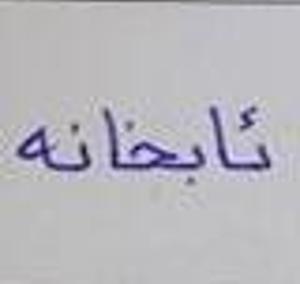 ئابخانە